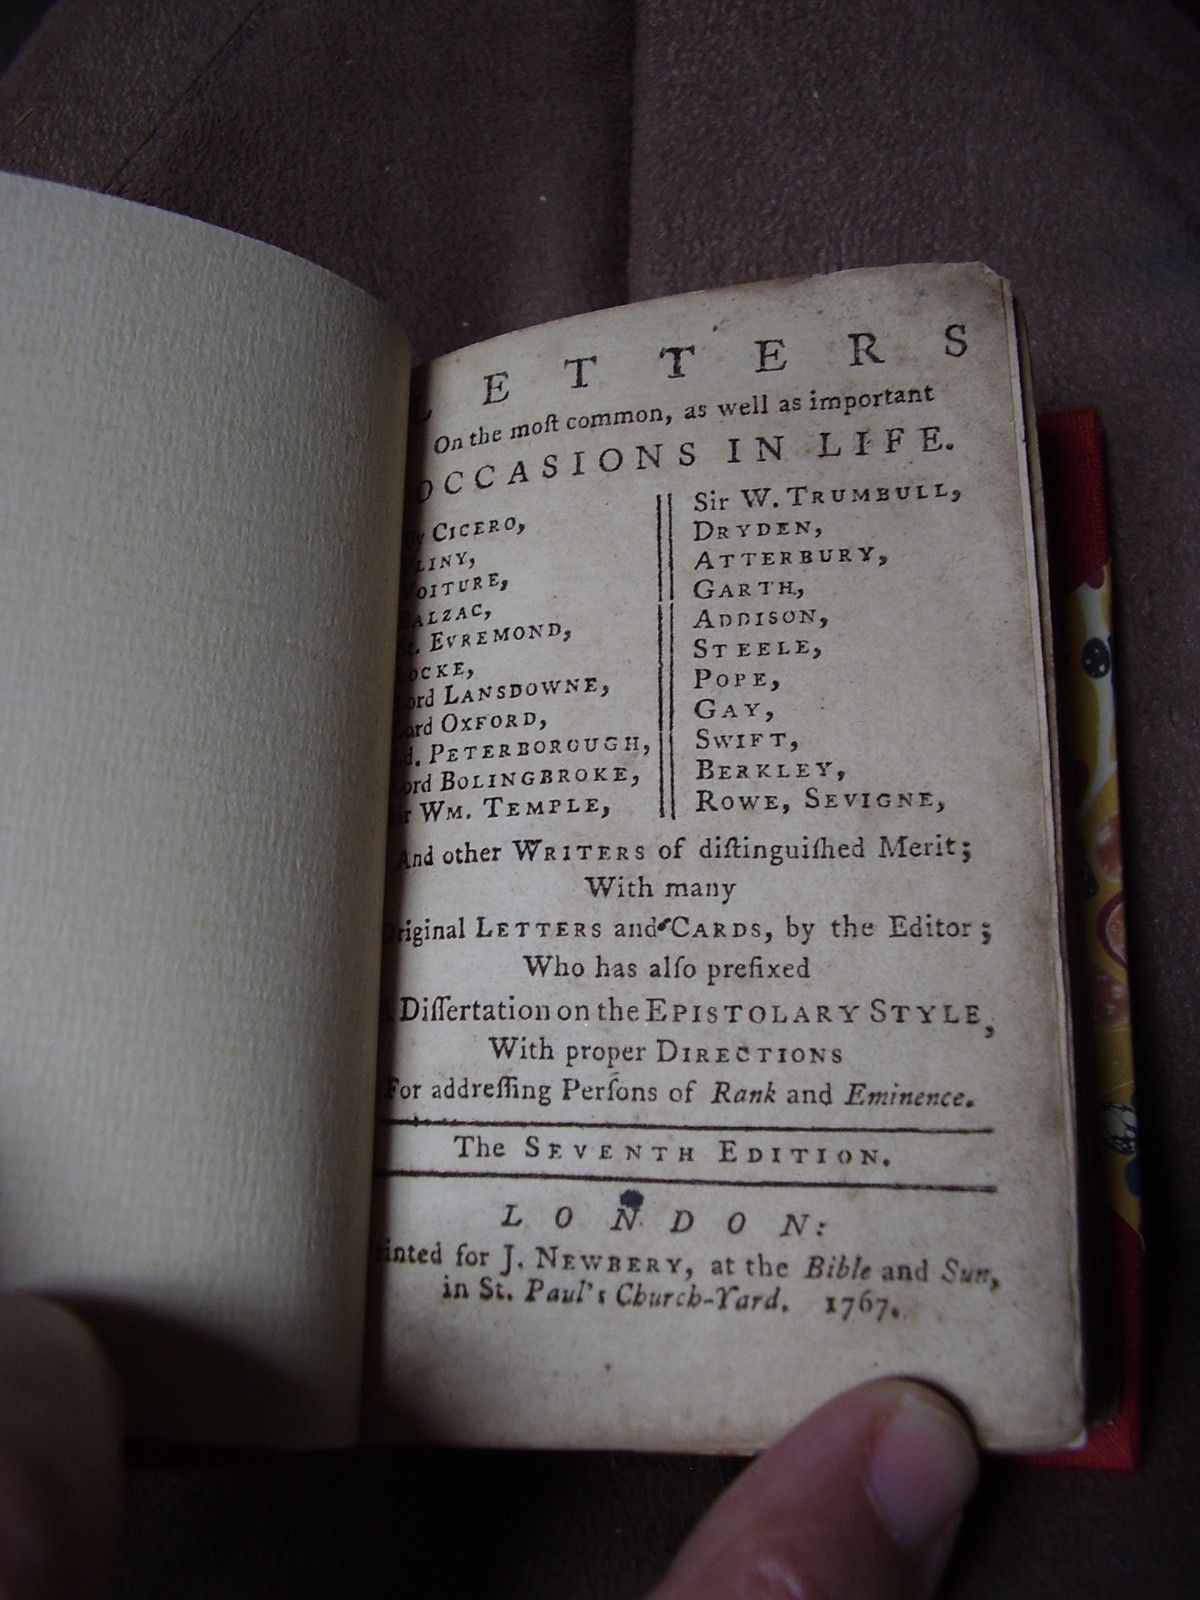 LETTERS
On the moſt common, as well as important
OCCASIONS IN LIFE.
By CICERO,
PLINY,
VOITURE,
BALZAC,
St. EVREMOND,
LOCKE,
Lord LANSDOWNE,
Lord OXFORD,
Ld. PETERBOROUGH,
Lord BOLINGBROKE,
Sir WM. TEMPLE,
Sir W. TRUMBULL,
DRYDEN,
ATTERBURY,
GARTH,
ADDISON,
STEELE,
POPE,
GAY,
SWIFT,
BERKLEY,
ROWE, SEVIGNE,
And other WRITERS of diſtinguiſhed Merit;
With many
Original LETTERS and CARDS, by the Editor;
Who has alſo prefixed
A Diſſertation on the EPISTOLARY STYLE,
With proper DIRECTIONS
For addreſſing Perſons of Rank and Eminence.
The SEVENTH EDITION.
LONDON:
Printed for J. NEWBERY, at the Bible and Sun,
in St. Paul's Church-Yard. 1767.